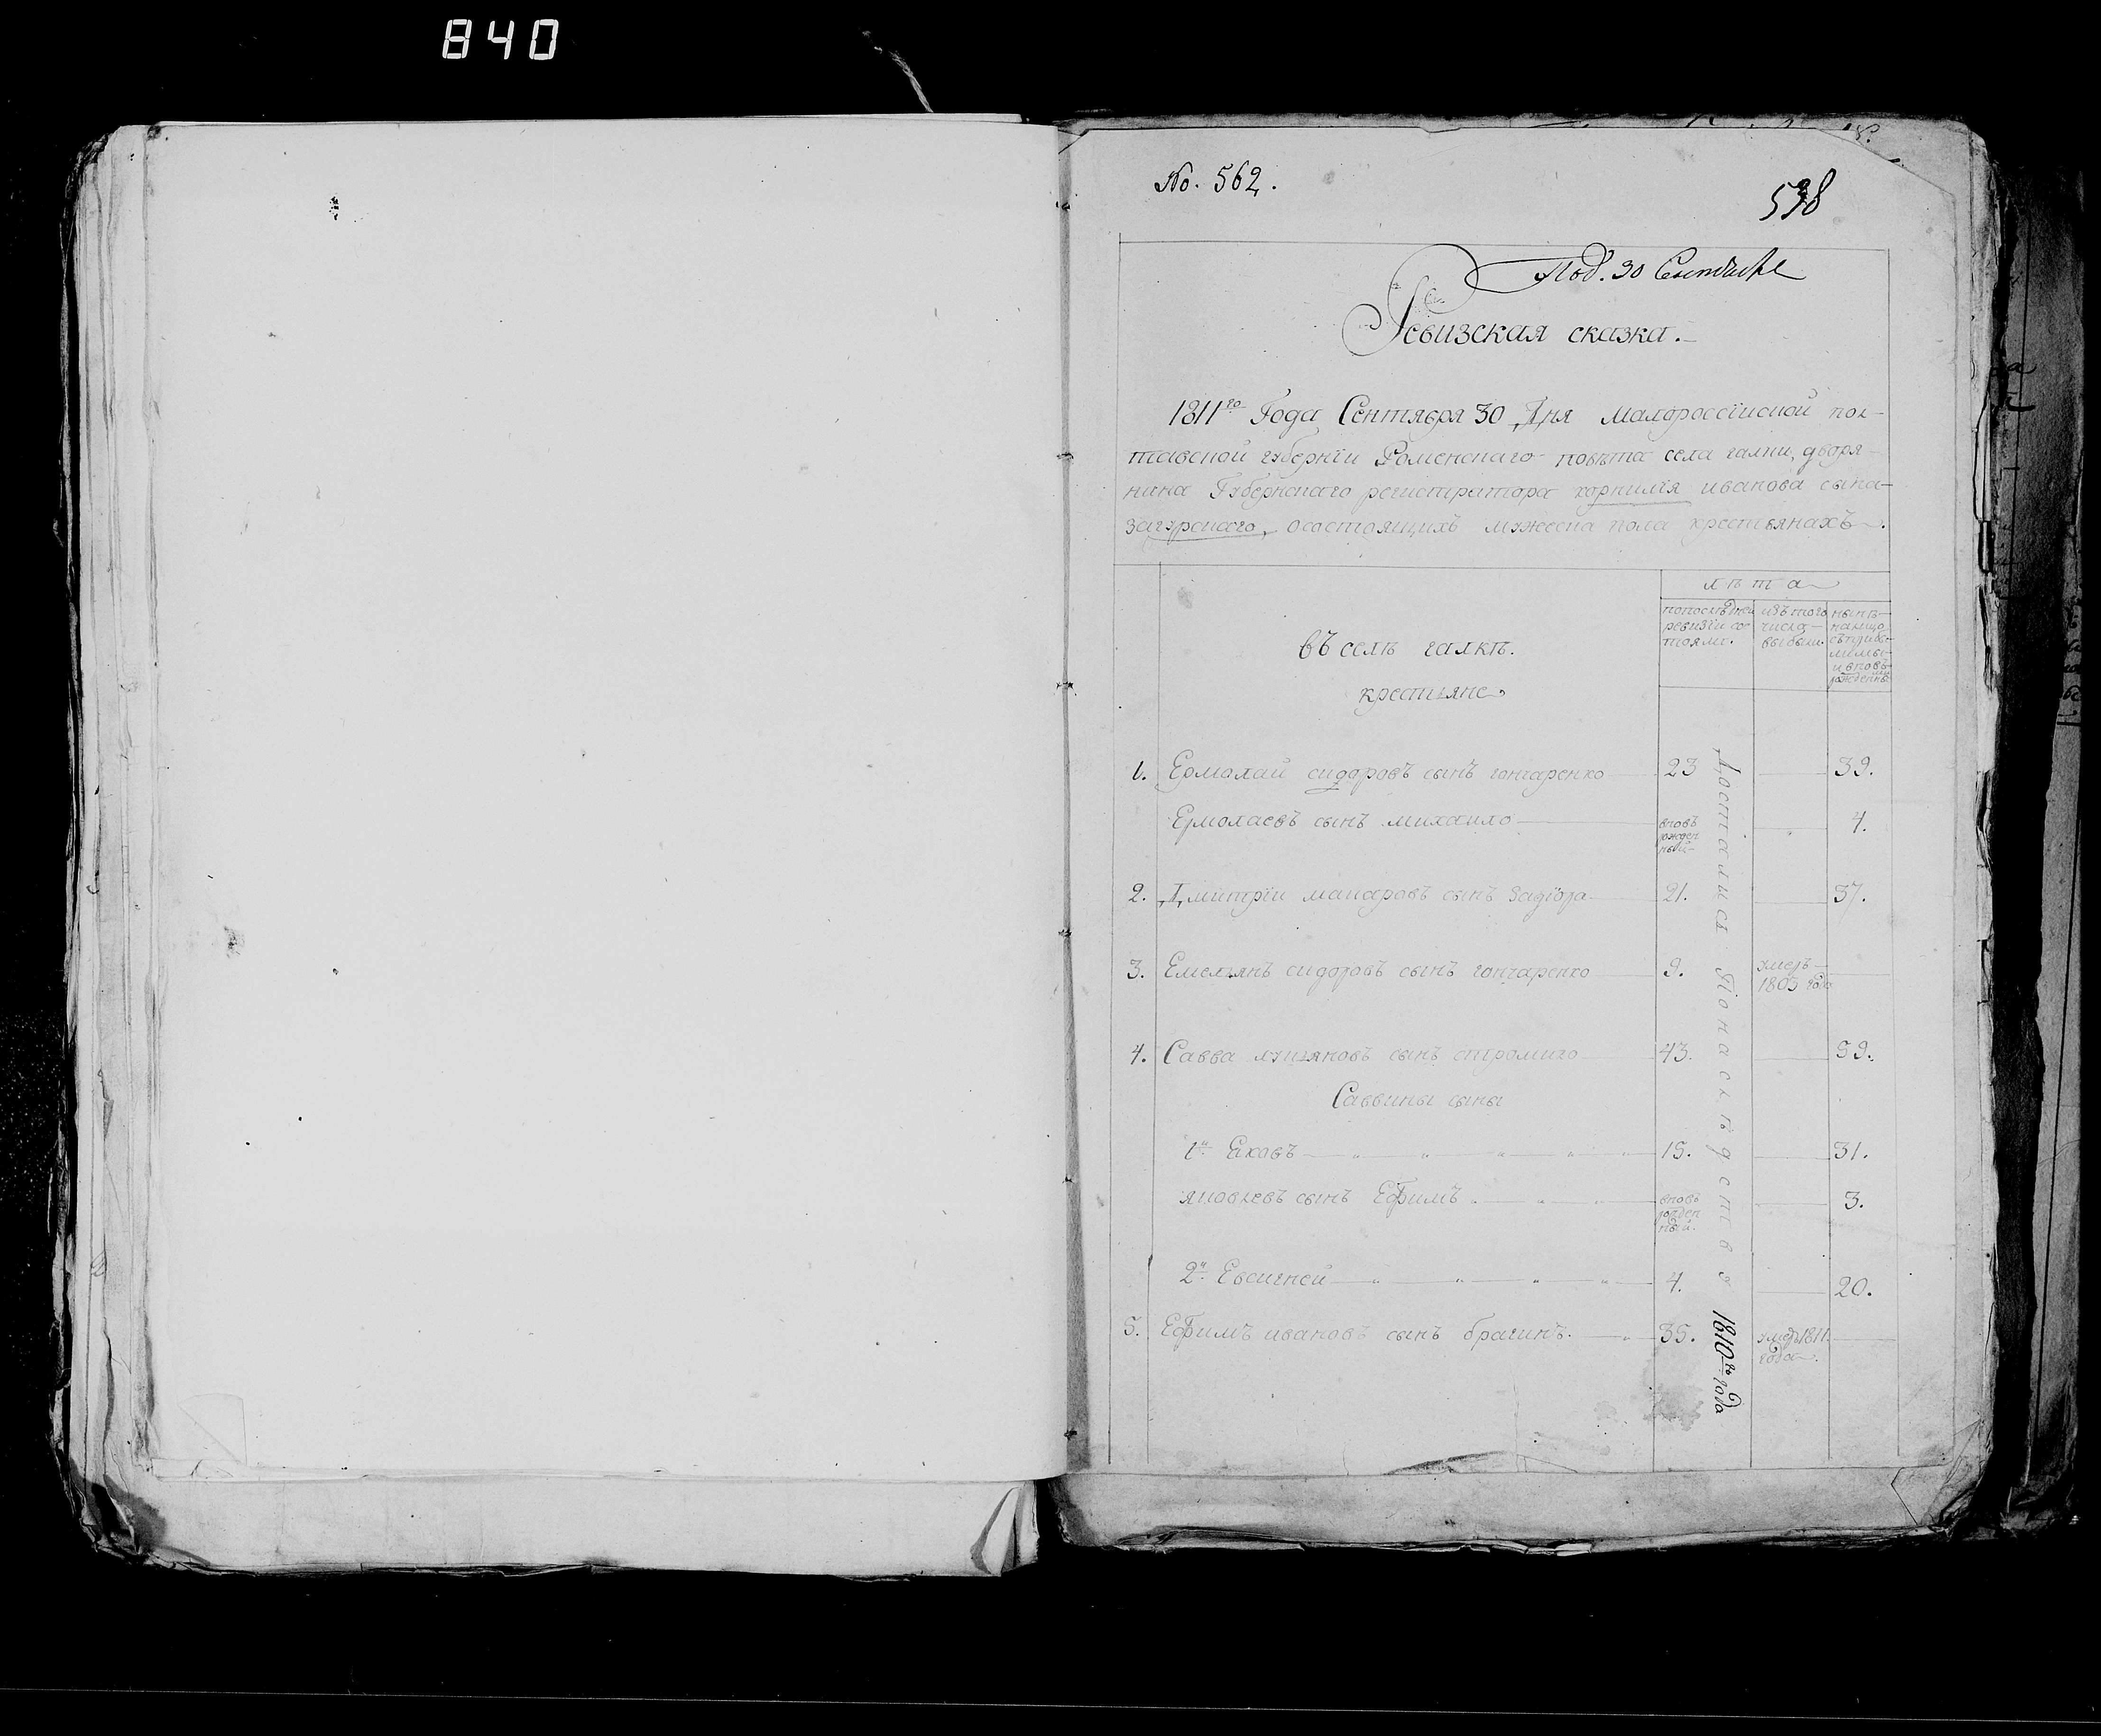 840
No. 562.
538
Под. 30 Сентября
Ревизская сказка.
1811го Года Сентября 30 Дня Малороссійской пол-
тавской губерніи Роменскаго повѣта села галки, дворя-
нина Губернскаго регистратора корнилія иванова сына
загурскаго, осостоящихъ мужеска пола крестьянахъ.
лѣта
попослѣдней
ревизіи со-
тояло.
изътого
числа
выбыло.
нынѣ
налицо
въ селѣ галкѣ.
крестьяне
1. Ермолай сидоровъ сынъ гончаренко 23 39.
Ермолаевъ сынъ михаило вновь рожден ный 4.
2. Дмитрій макаровъ сынъ задіора 21. 37.
3. Емельянъ сидоровъ сынъ гончаренко 9. умеръ 1805 года
4. Савва лукьяновъ сынъ стромико 43. 59.
Саввины сыны
1й Яковъ 15. 31.
яковлевъ сынъ Ефимъ вновь рожден ный. 3.
2й Евсигней 4. 20.
5. Ефимъ ивановъ сынъ брагинъ. 35. умеръ 1811 года
Достались Понаслѣдству 1810го года